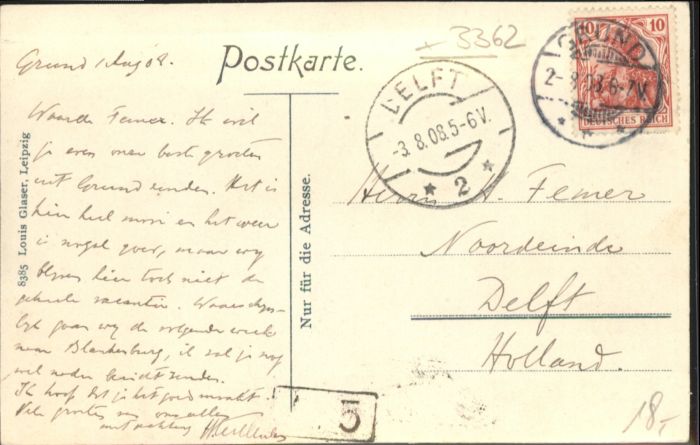 Postkarte.
3362
Grund 1 Aug 08.
Waarde Femer. Ik wil
je even onze beste groeten
uit Grund zenden. Het is
hier heel mooi en het weer
is nogal goed, maar wy
blyven hier toch niet de
geheele vacantie. Waarschyn-
lyk gaan wy de volgende week
naar Blankenburg, ik zal je nog
wel nader bericht zenden.
Ik hoop dat je het goed maakt
Vele groeten van ons allen
met achting
8385 Louis Glaser, Leipzig
Nur für die Adresse.
DELFT
-3.8.08.5-6V.
2
GRUND
2-8.08.6-7V.
10 10
DEUTSCHES REICH
Herrn H. Femer
Noordeinde
Delft
Holland.
5
18,-